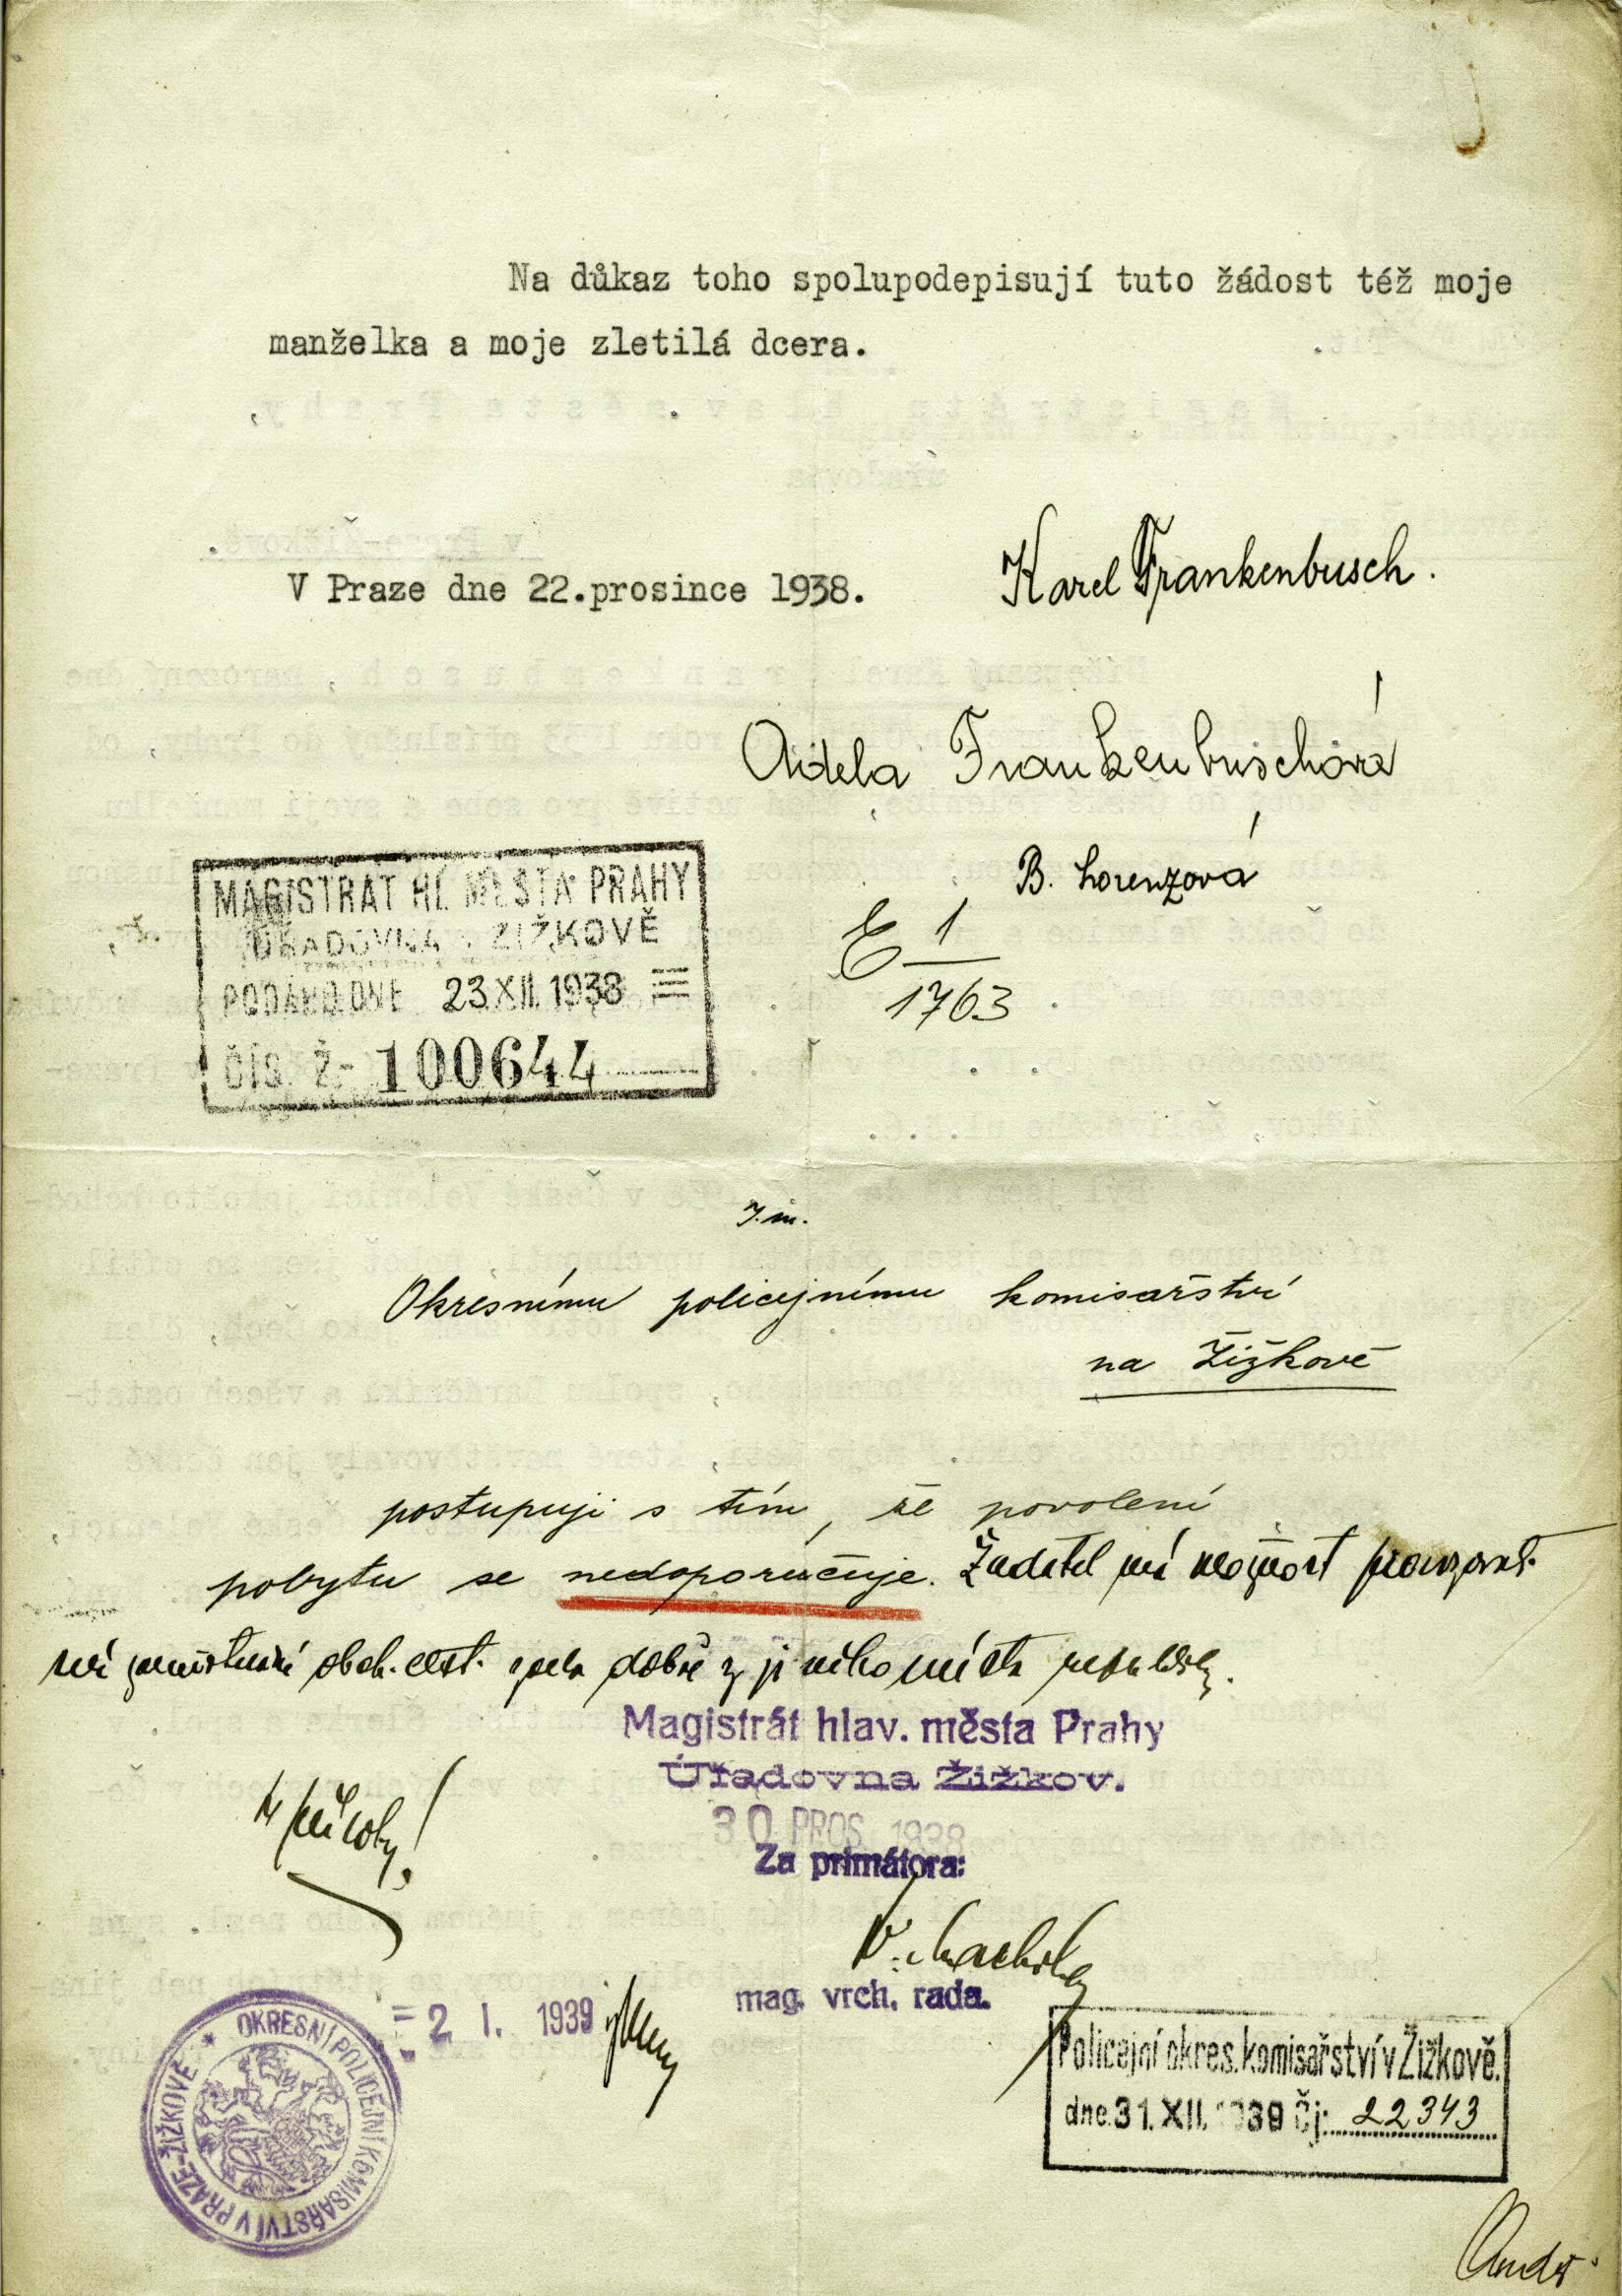 Na důkaz toho spolupodepisují tuto žádost též moje
manželka a moje zletilá dcera.
V Praze dne 22.prosince 1938.
Karel Frankenbusch.
Adela Frankenbuschová
B. Lorenzová
E 1
1763
MAGISTRÁT HL. MĚSTA PRAHY
ÚŘADOVNA ŽIŽKOVĚ
PODÁNO DNE 23.XII.1938
ČÍS. Ž.- 100644
Okresnímu policejnímu komisařství
na Žižkově
postupuji s tím, že povolení
pobytu se nedoporučuje. Žadatel má možnost
obch. zást. zcela dobře z jiného místa republiky.
Magistrát hlav. města Prahy
Úřadovna Žižkov.
30 PROS. 1938
Za primátora:
mag. vrch. rada.
= 2 I. 1939
OKRESNÍ POLICEJNÍ KOMISAŘSTVÍ V PRAZE-ŽIŽKOVĚ
Policejní okres. komisařství v Žižkově.
dne 31.XII. 1939 Čj: 22343